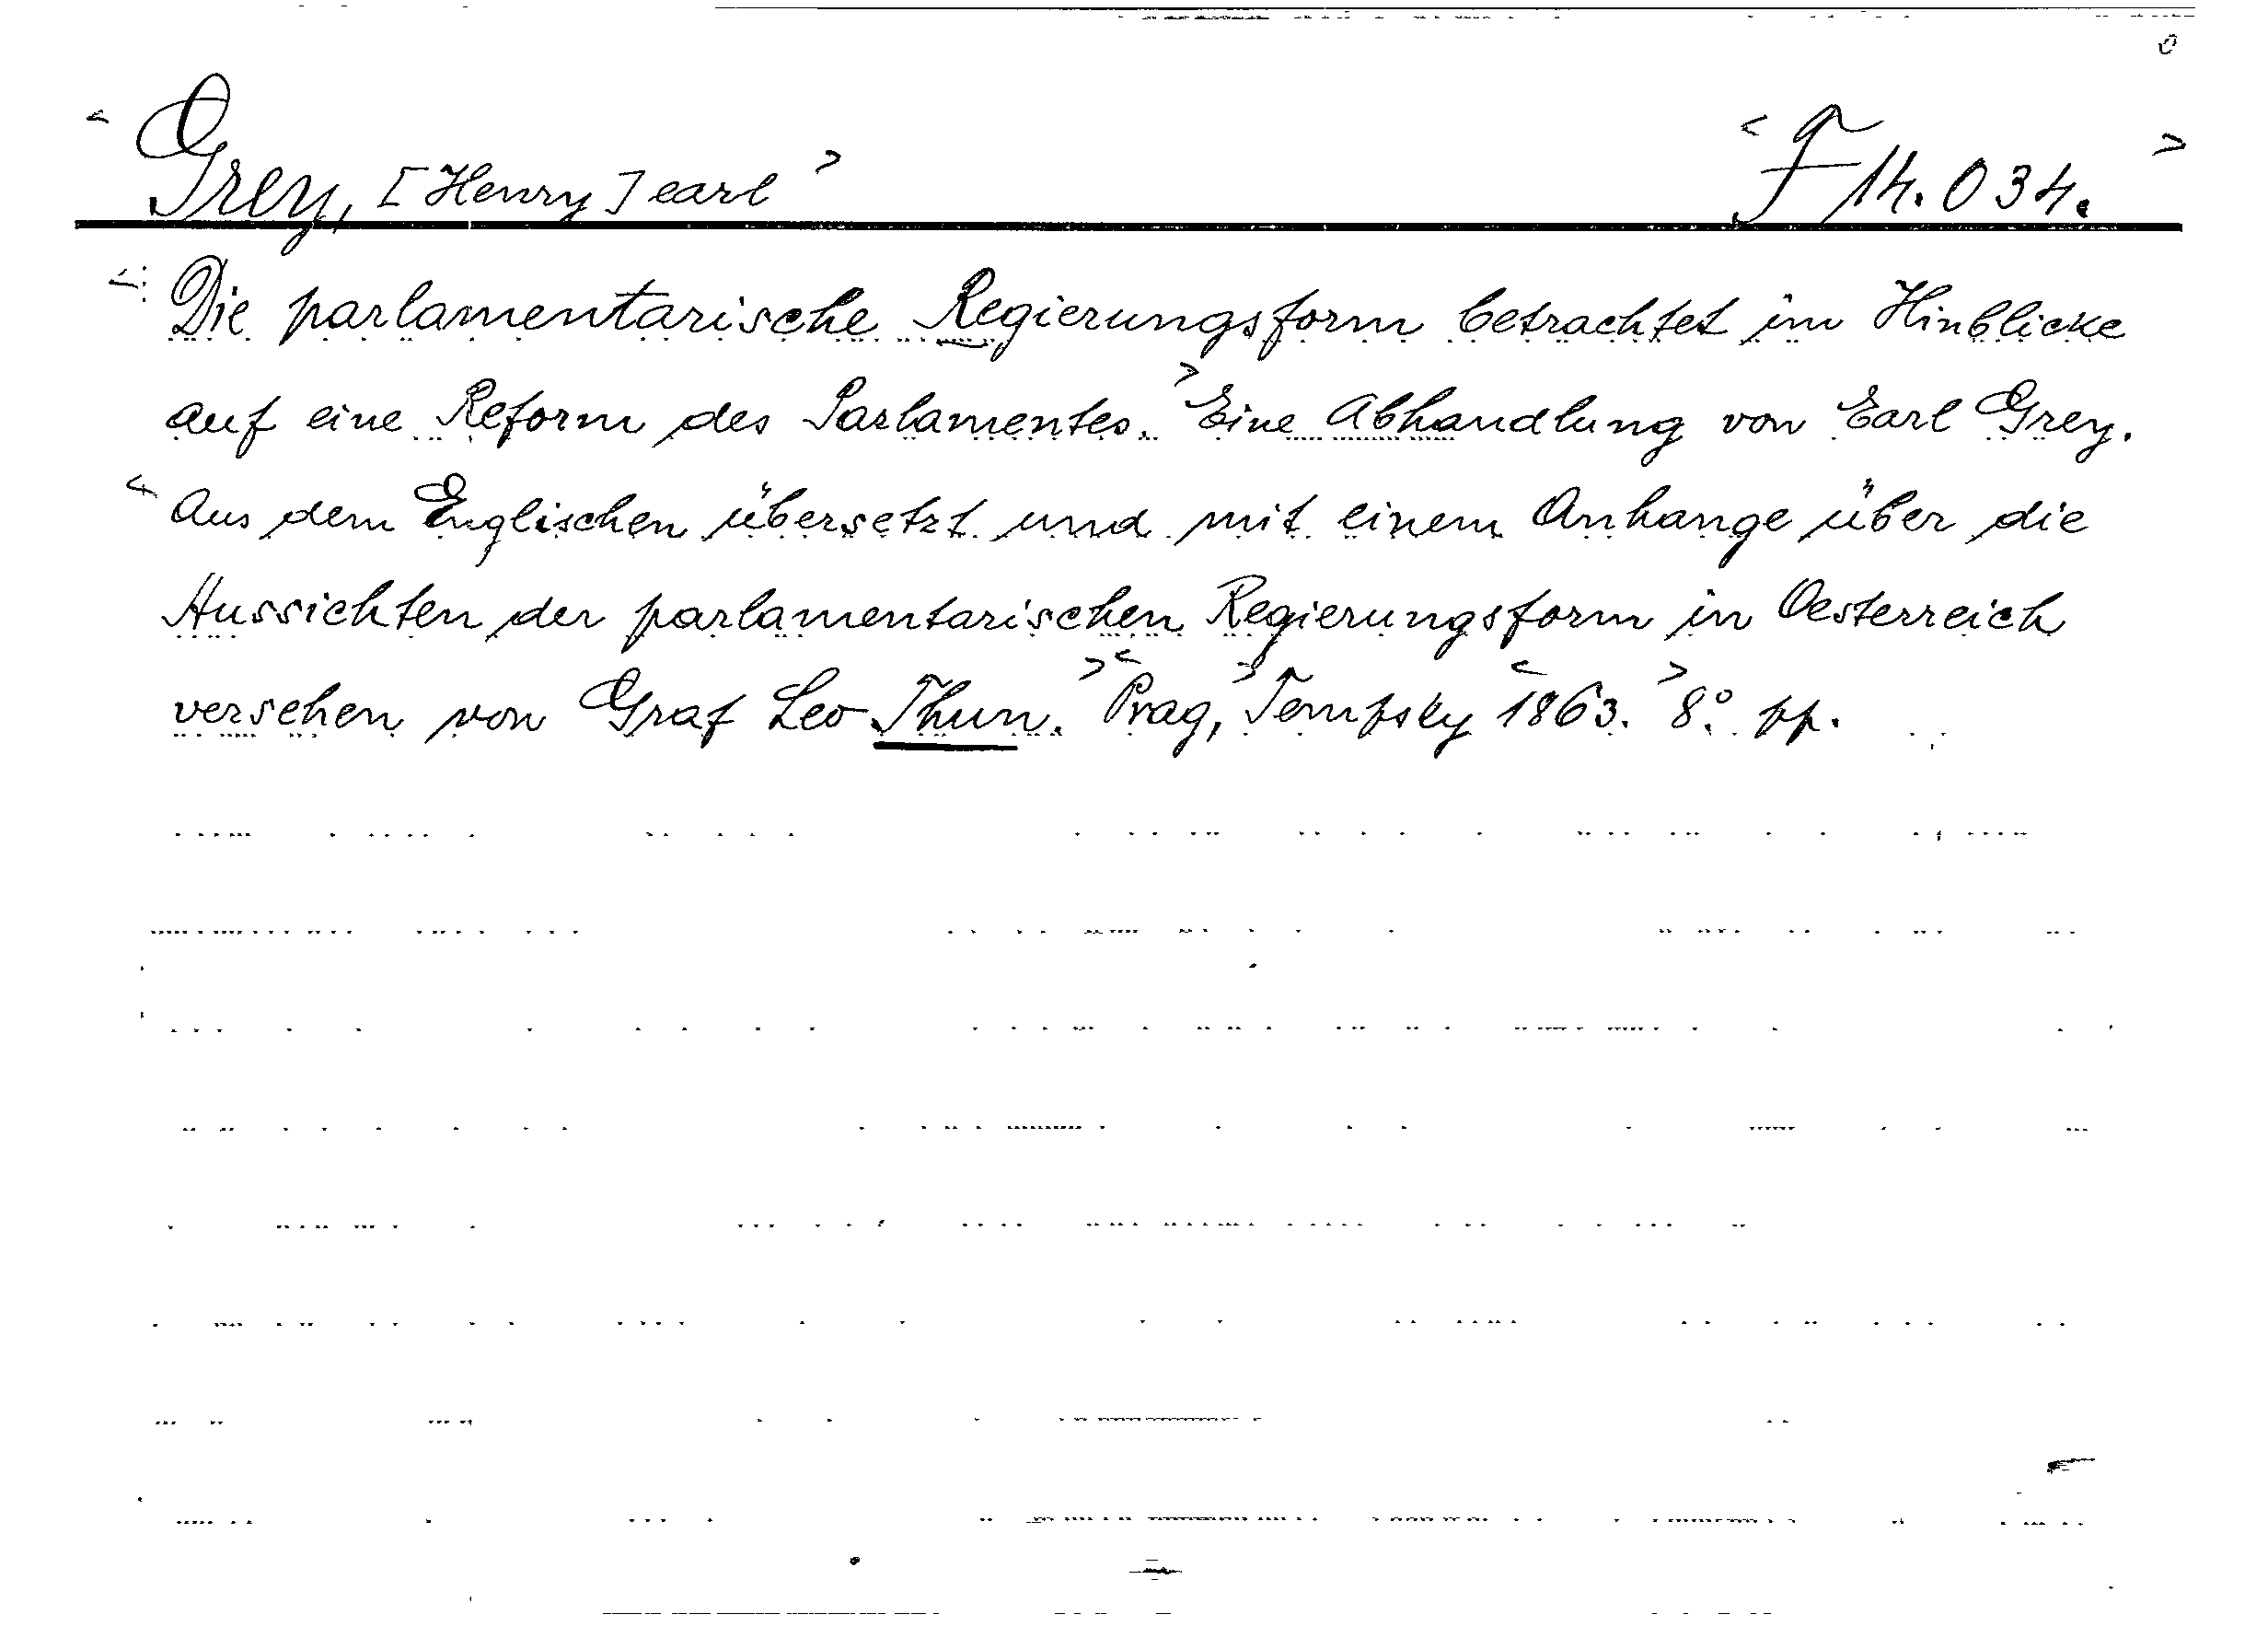 Grey, [Henry] earl F 14.034.
Die parlamentarische Regierungsform betrachtet im Hinblicke
auf eine Reform des Parlamentes. Eine Abhandlung von Earl Grey.
Aus dem Englischen übersetzt und mit einem Anhange über die
Aussichten der parlamentarischen Regierungsform in Oesterreich
versehen von Graf Leo Thun. Prag, Tempsky 1863. 8°. pp.